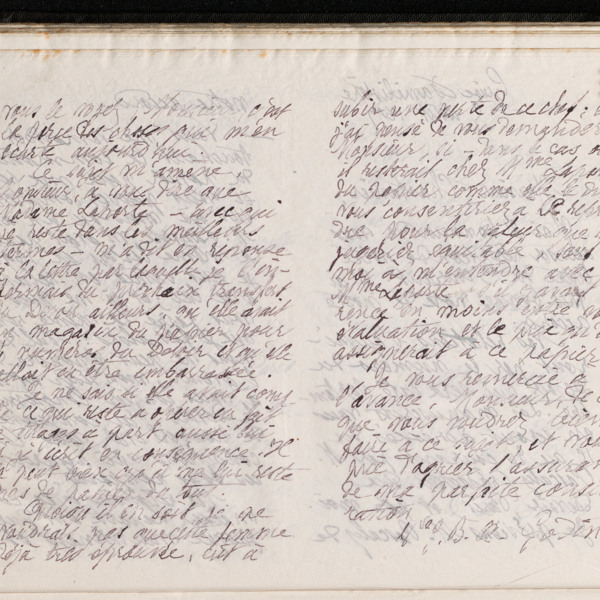 vous le voyez, Monsieur, c'est
la force des choses qui m'en
écarte aujourd'hui.
Ce sujet m'amène,
Monsieur, à vous dire que
Madame Laporte – avec qui
je reste dans les meilleurs
termes – m'a dit en réponse
à la lettre par laquelle je l'in-
formais du prochain transfert
du Devoir ailleurs, qu'elle avait
en magasin du papier pour
numéros du Devoir et qu'elle
allait en être embarrassée.
Je ne sais si elle avait compris
ce qui reste à
Mars à part aussi
et écrit en conséquence. Il
se peut qu'il ne lui reste
pas de papier du tout.
Quoiqu'il en soit, je ne
voudrais pas que cette femme
déjà très éprouvée, eût à
subir une perte de ce chef;
j'ai pensé de vous demander
Monsieur, si – dans le cas où
il resterait chez Mme Laporte
du papier comme elle le dit
vous consentiriez à le repren-
dre pour la valeur que
jugeriez équitable, sauf
moi à m'entendre avec
Mme Laporte s'il y avait
rence en moins entre votre
évaluation et le prix qu'
assignerait à ce papier
Je vous remercie à
l'avance, Monsieur, de ce
que vous voudrez bien
faire à ce sujet, et vous
prie d'agréer l'assurance
de ma parfaite consi-
ration
Vve B. A. Godin